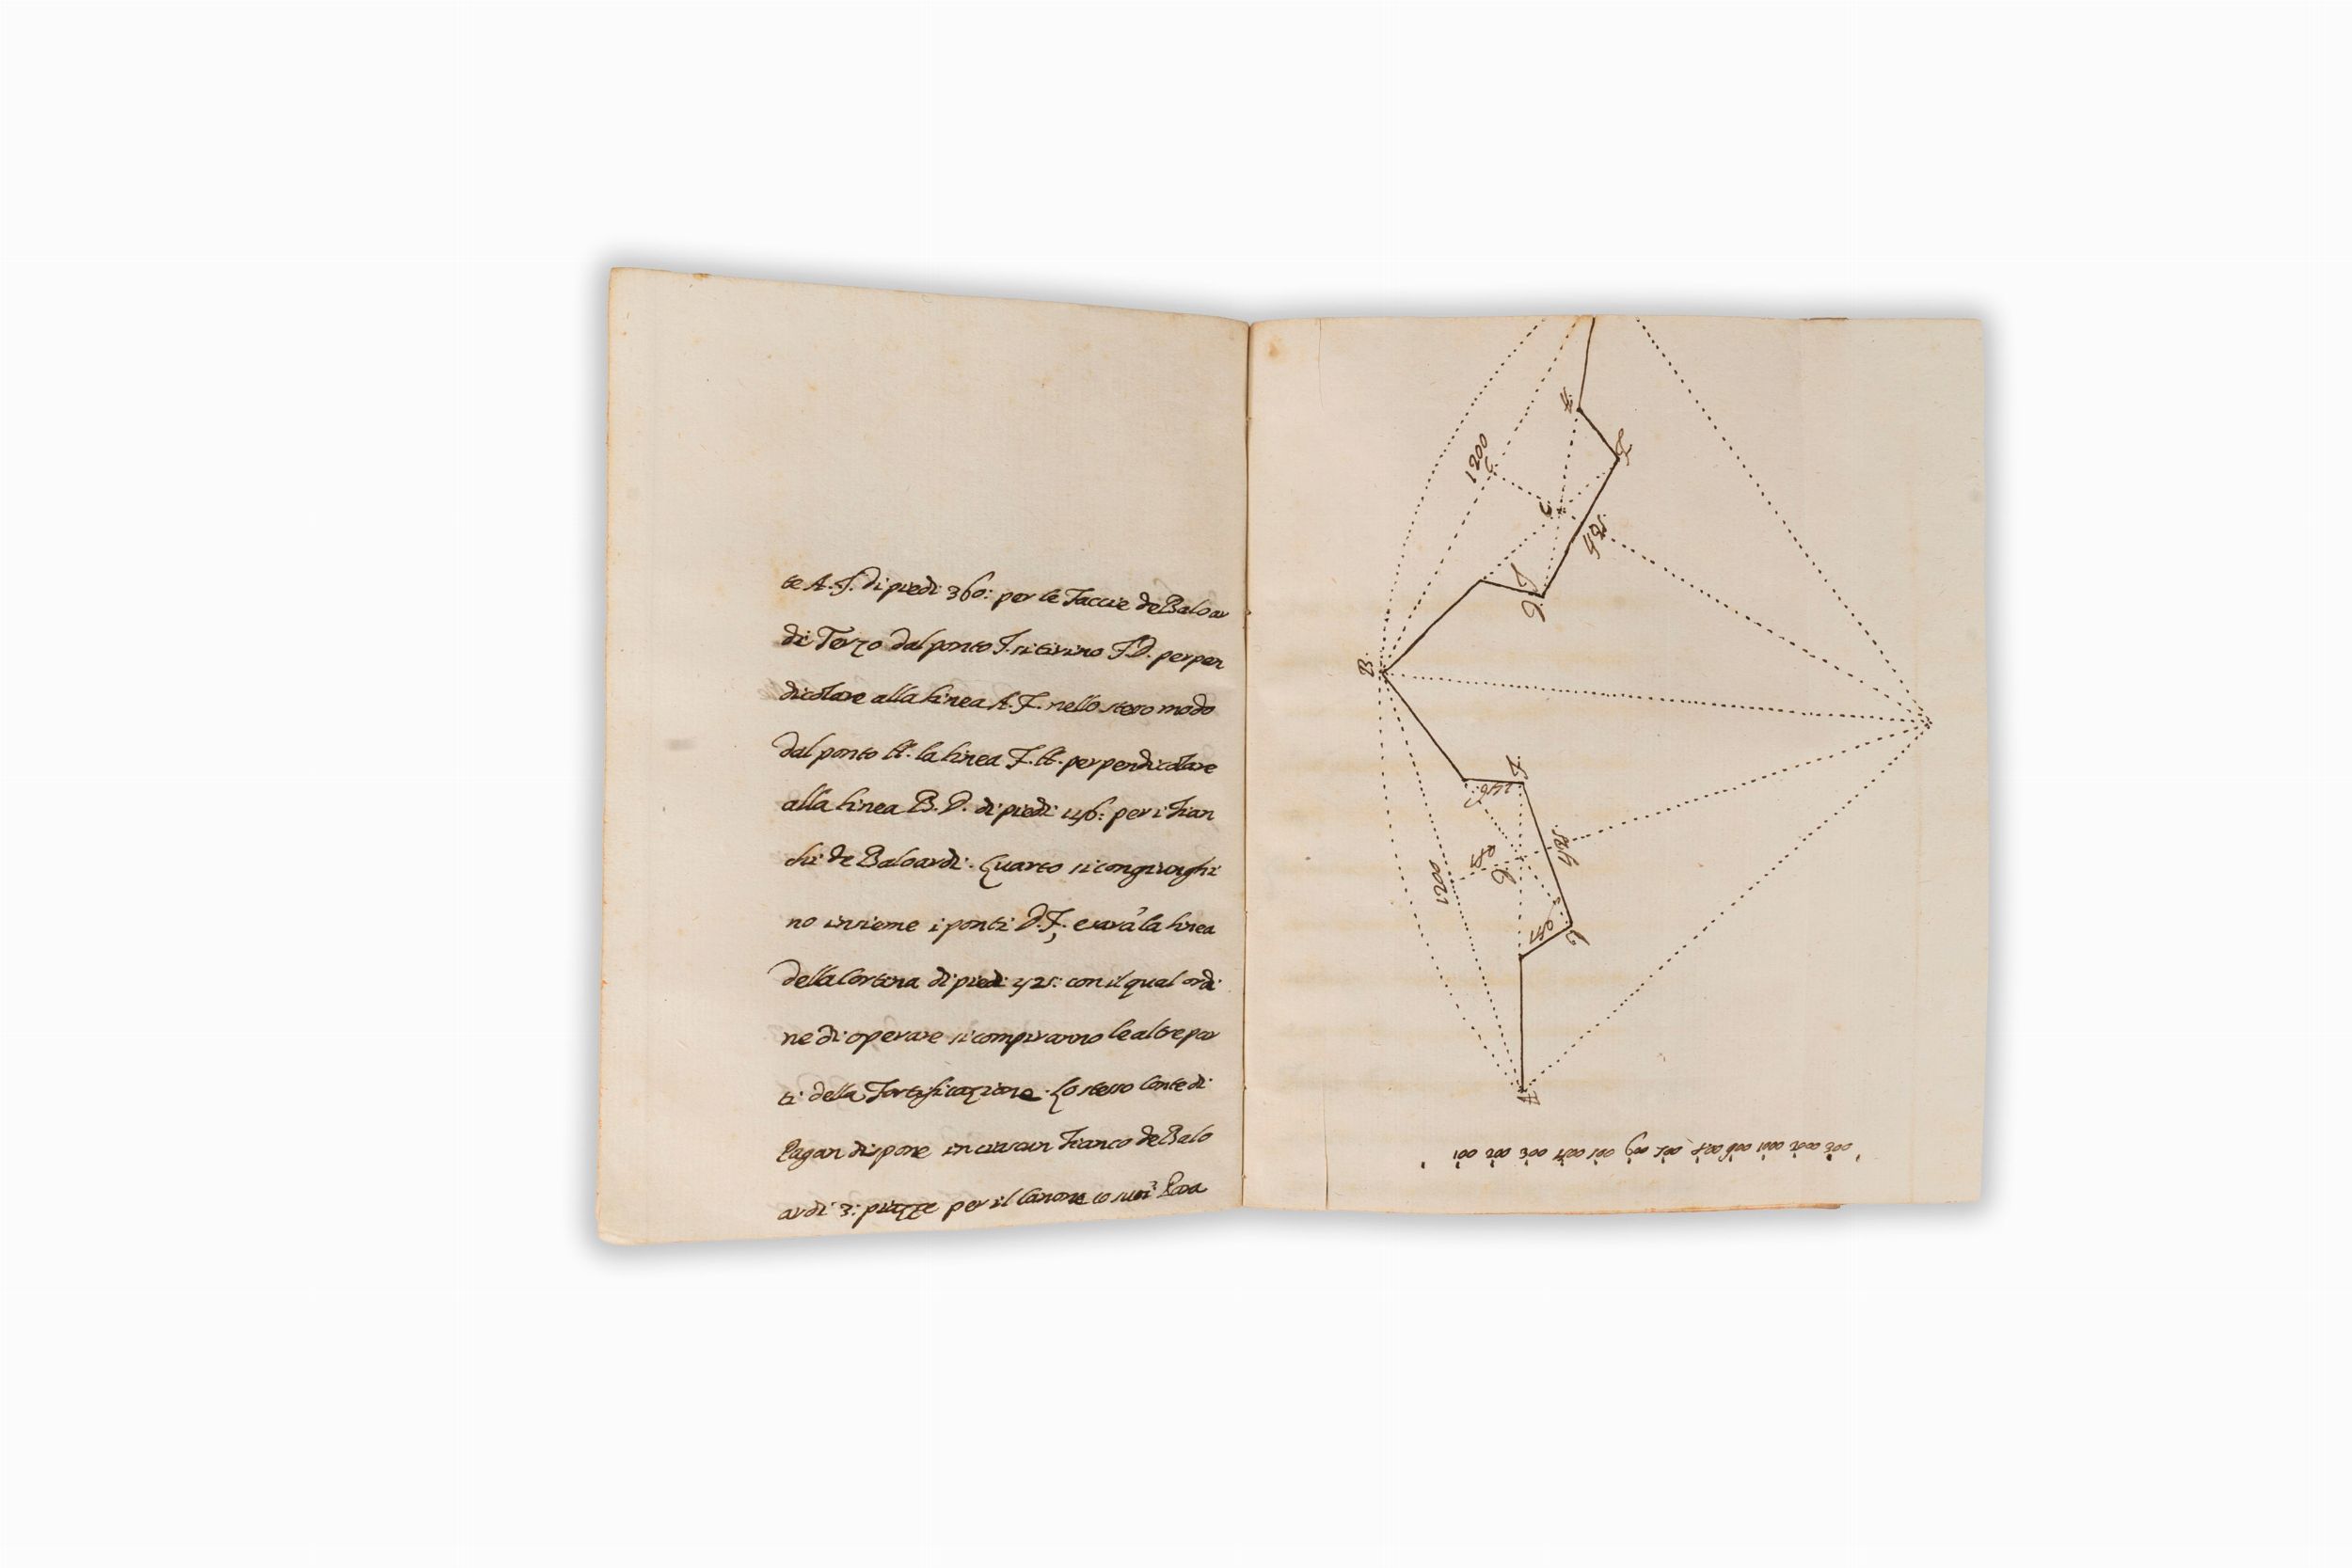 te A. F. di piedi 360: per le Faccie de Baloar
di Terzo dal ponto F. si tirino F.D. perpen
dicolare alla linea A.F. nello stesso modo
dal ponto H. la linea F.H. perpendicolare
alla linea B. D. di piedi 146: per i Fian
chi de Baloardi. Quarto si congiunghi
no insieme i ponti D.F; e sarà la linea
della Cortina di piedi 525: con il qual ordi
ne di operare si compiranno le altre par
ti della Fortificazione. Lo stesso Conte di
Pagan dispone in ciascun Fianco de Balo
ardi 3: piazze per il Canone co suoi Para
1200
C.
H.
F.
B.
F.
1200
150
A.
100 200 300